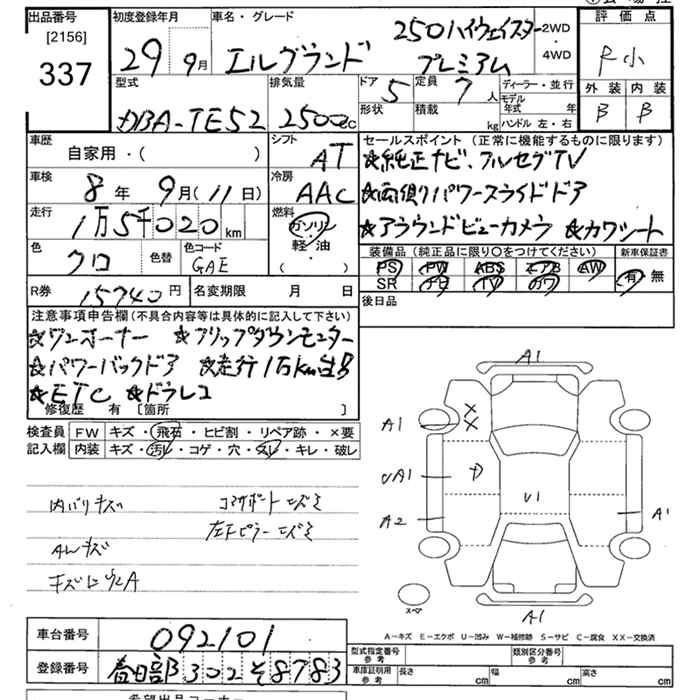 出品番号 初度登録年月 車名・グレード 評価点
[2156] 337 29 9月 エルグランド 250ハイウェイスター プレミアム 2WD・4WD P小
型式 排気量 ドア 5 定員 7人 ディーラー・並行 外装 内装
DBA-TE52 2500cc 形状 積載 kg モデル年式 年 ハンドル 左・右 B B
車歴 シフト セールスポイント (正常に機能するものに限ります)
自家用・( ) AT ★純正ナビ、フルセグTV
車検 冷房 ★両側パワースライドドア
8年 9月(11日) AAC ★アラウンドビューカメラ ★カワシート
走行 燃料 装備品(純正品に限り〇をつけてください) 新車保証書
1万5千020km ガソリン 軽油 (・) PS PW ABS エアB AW 有 無
色 クロ 色替 色コード GAE SR ナビ TV カワ
R券 15740円 名変期限 月 日 後日品
注意事項申告欄(不具合内容等は具体的に記入して下さい)
★ワンオーナー ★フリップダウンモニター
★パワーバックドア ★走行1万km台
★ETC ★ドラレコ
修復歴 有 [箇所 ]
検査員 FW キズ・飛石・ヒビ割・リペア跡・×要
記入欄 内装 キズ・汚レ・コゲ・穴・スレ・キレ・破レ
内バリキズ
左Fピラー
AWキズ
A1
A1 ××
A1 D U1
A2 A1
スペア
A1
A-キズ E-エクボ U-凹み W-補修跡 S-サビ C-腐食 XX-交換済
車台番号 092101 型式指定番号 参考 類別区分番号 参考
登録番号 春日部 302 そ 8783 車庫証明用 参考 長さ cm 幅 cm 高さ cm